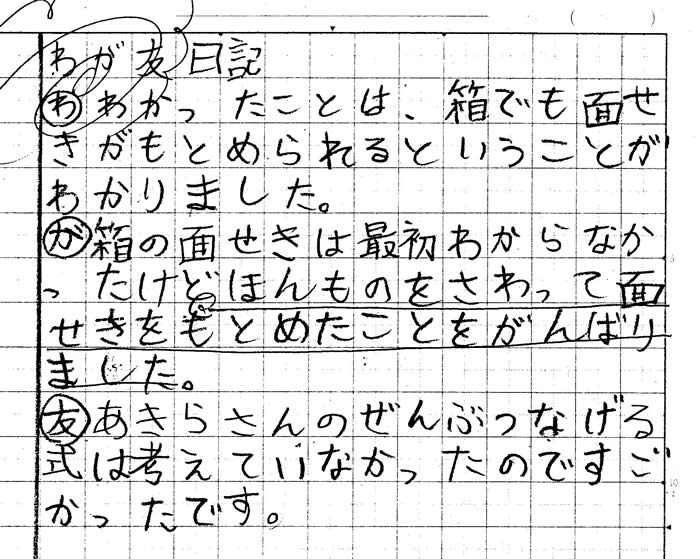 わが友日記
わ わかったことは、箱でも面せ
きがもとめられるということが
わかりました。
が 箱の面せきは最初わからなか
ったけどほんものをさわって面
せきをもとめたことをがんばり
ました。
友 あきらさんのぜんぶつなげる
式は考えていなかったのですご
かったです。